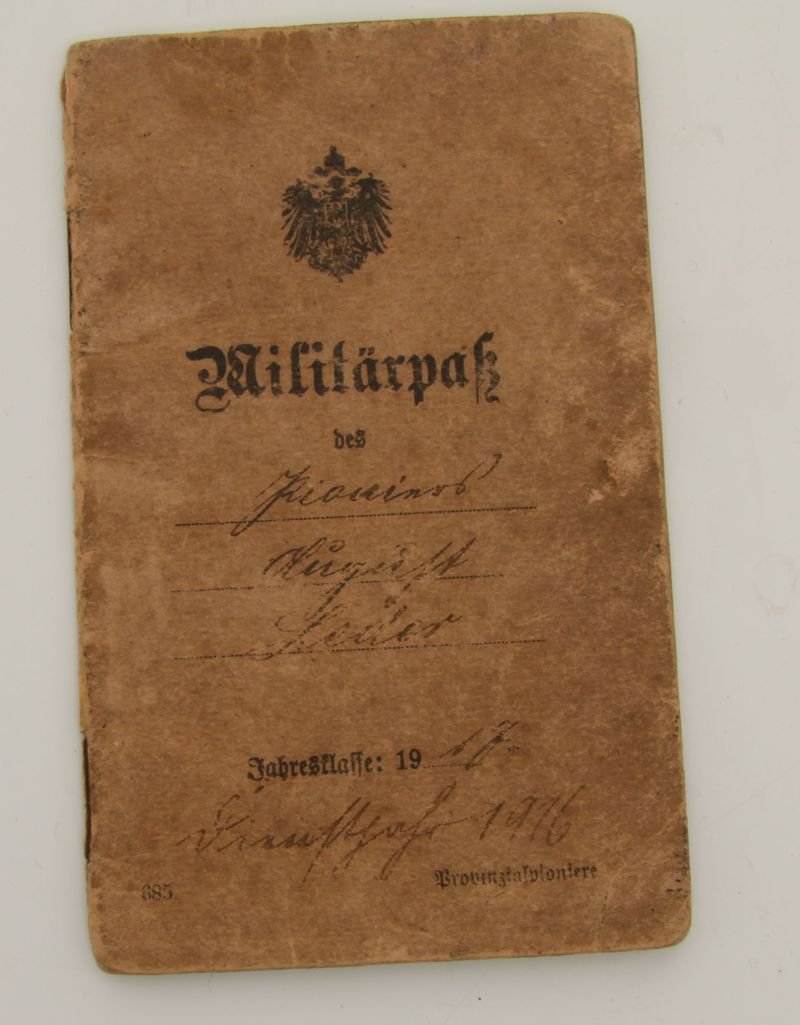 Militärpaß
des
Pioniers
August
Jahresklasse: 19 17.
Dienstjahr 1916
685. Provinzialpioniere